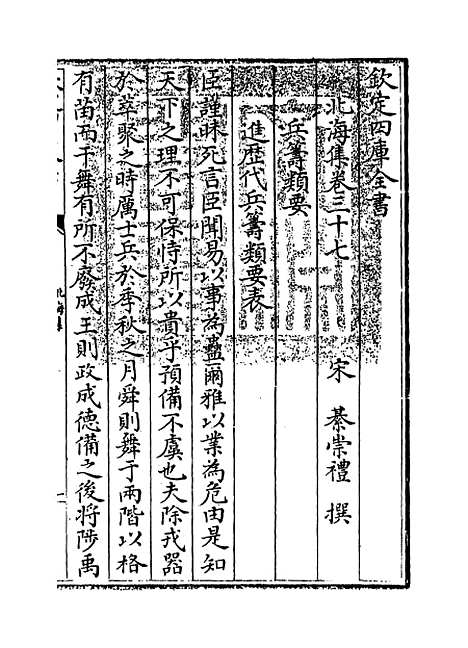 欽定四庫全書
北海集卷三十七
宋 綦崇禮 撰
兵籌類要
進歷代兵籌類要表
臣謹昧死言臣聞易以事為蠱爾雅以業為危由是知
天下之理不可保恃所以貴乎預備不虞也夫除戎器
於萃聚之時厲士兵於季秋之月舜則舞于兩階以格
有苗而干舞有所不廢成王則政成德備之後將陟禹